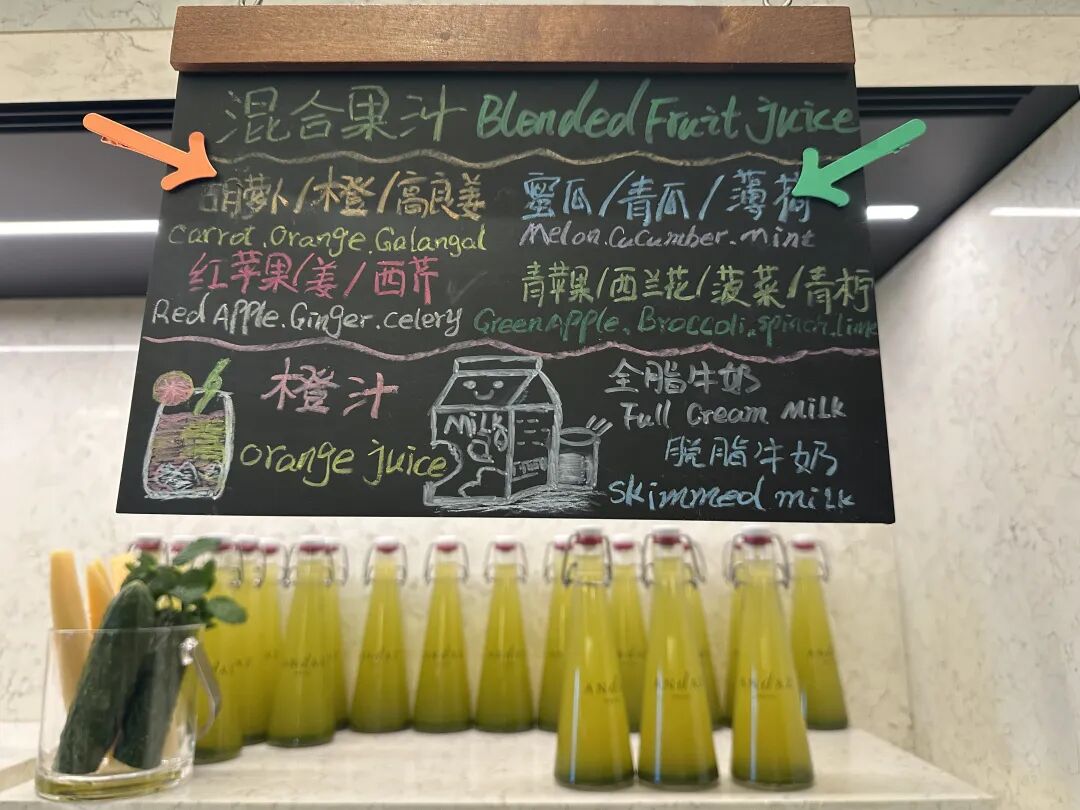 混合果汁 Blended Fruit juice
胡萝卜/橙/高良姜
Carrot.Orange.Galangal
红苹果/姜/西芹
Red Apple.Ginger.celery
蜜瓜/青瓜/薄荷
Melon.Cucumber.mint
青苹果/西兰花/菠菜/青柠
Green Apple.Broccoli.spinach.lime
橙汁
orange juice
MiLK
全脂牛奶
Full Cream MiLK
脱脂牛奶
Skimmed miLK
ANdAZ
ANdAZ
ANdAZ